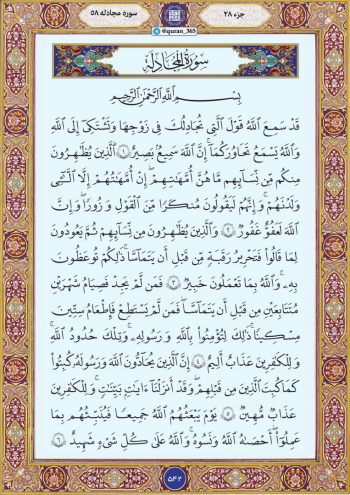 جزء ۲۸
سوره مجادله ۵۸
@quran_365
سُورَةُ المُجَادلَة
بِسْمِ ٱللَّهِ ٱلرَّحْمَٰنِ ٱلرَّحِيمِ
قَدْ سَمِعَ ٱللَّهُ قَوْلَ ٱلَّتِي تُجَٰدِلُكَ فِي زَوْجِهَا وَتَشْتَكِيٓ إِلَى ٱللَّهِ
وَٱللَّهُ يَسْمَعُ تَحَاوُرَكُمَآ إِنَّ ٱللَّهَ سَمِيعٌۢ بَصِيرٌ ۝١ ٱلَّذِينَ يُظَٰهِرُونَ
مِنكُم مِّن نِّسَآئِهِم مَّا هُنَّ أُمَّهَٰتِهِمْ إِنْ أُمَّهَٰتُهُمْ إِلَّا ٱلَّٰٓـِٔي
وَلَدْنَهُمْ وَإِنَّهُمْ لَيَقُولُونَ مُنكَرًا مِّنَ ٱلْقَوْلِ وَزُورًا وَإِنَّ
ٱللَّهَ لَعَفُوٌّ غَفُورٌ ۝٢ وَٱلَّذِينَ يُظَٰهِرُونَ مِن نِّسَآئِهِمْ ثُمَّ يَعُودُونَ
لِمَا قَالُوا۟ فَتَحْرِيرُ رَقَبَةٍ مِّن قَبْلِ أَن يَتَمَآسَّا ذَٰلِكُمْ تُوعَظُونَ
بِهِۦ وَٱللَّهُ بِمَا تَعْمَلُونَ خَبِيرٌ ۝٣ فَمَن لَّمْ يَجِدْ فَصِيَامُ شَهْرَيْنِ
مُتَتَابِعَيْنِ مِن قَبْلِ أَن يَتَمَآسَّا فَمَن لَّمْ يَسْتَطِعْ فَإِطْعَامُ سِتِّينَ
مِسْكِينًا ذَٰلِكَ لِتُؤْمِنُوا۟ بِٱللَّهِ وَرَسُولِهِۦ وَتِلْكَ حُدُودُ ٱللَّهِ
وَلِلْكَٰفِرِينَ عَذَابٌ أَلِيمٌ ۝٤ إِنَّ ٱلَّذِينَ يُحَآدُّونَ ٱللَّهَ وَرَسُولَهُۥ كُبِتُوا۟
كَمَا كُبِتَ ٱلَّذِينَ مِن قَبْلِهِمْ وَقَدْ أَنزَلْنَآ ءَايَٰتٍۭ بَيِّنَٰتٍ وَلِلْكَٰفِرِينَ
عَذَابٌ مُّهِينٌ ۝٥ يَوْمَ يَبْعَثُهُمُ ٱللَّهُ جَمِيعًا فَيُنَبِّئُهُم بِمَا
عَمِلُوٓا۟ أَحْصَىٰهُ ٱللَّهُ وَنَسُوهُ وَٱللَّهُ عَلَىٰ كُلِّ شَيْءٍ شَهِيدٌ ۝٦
۵۴۲